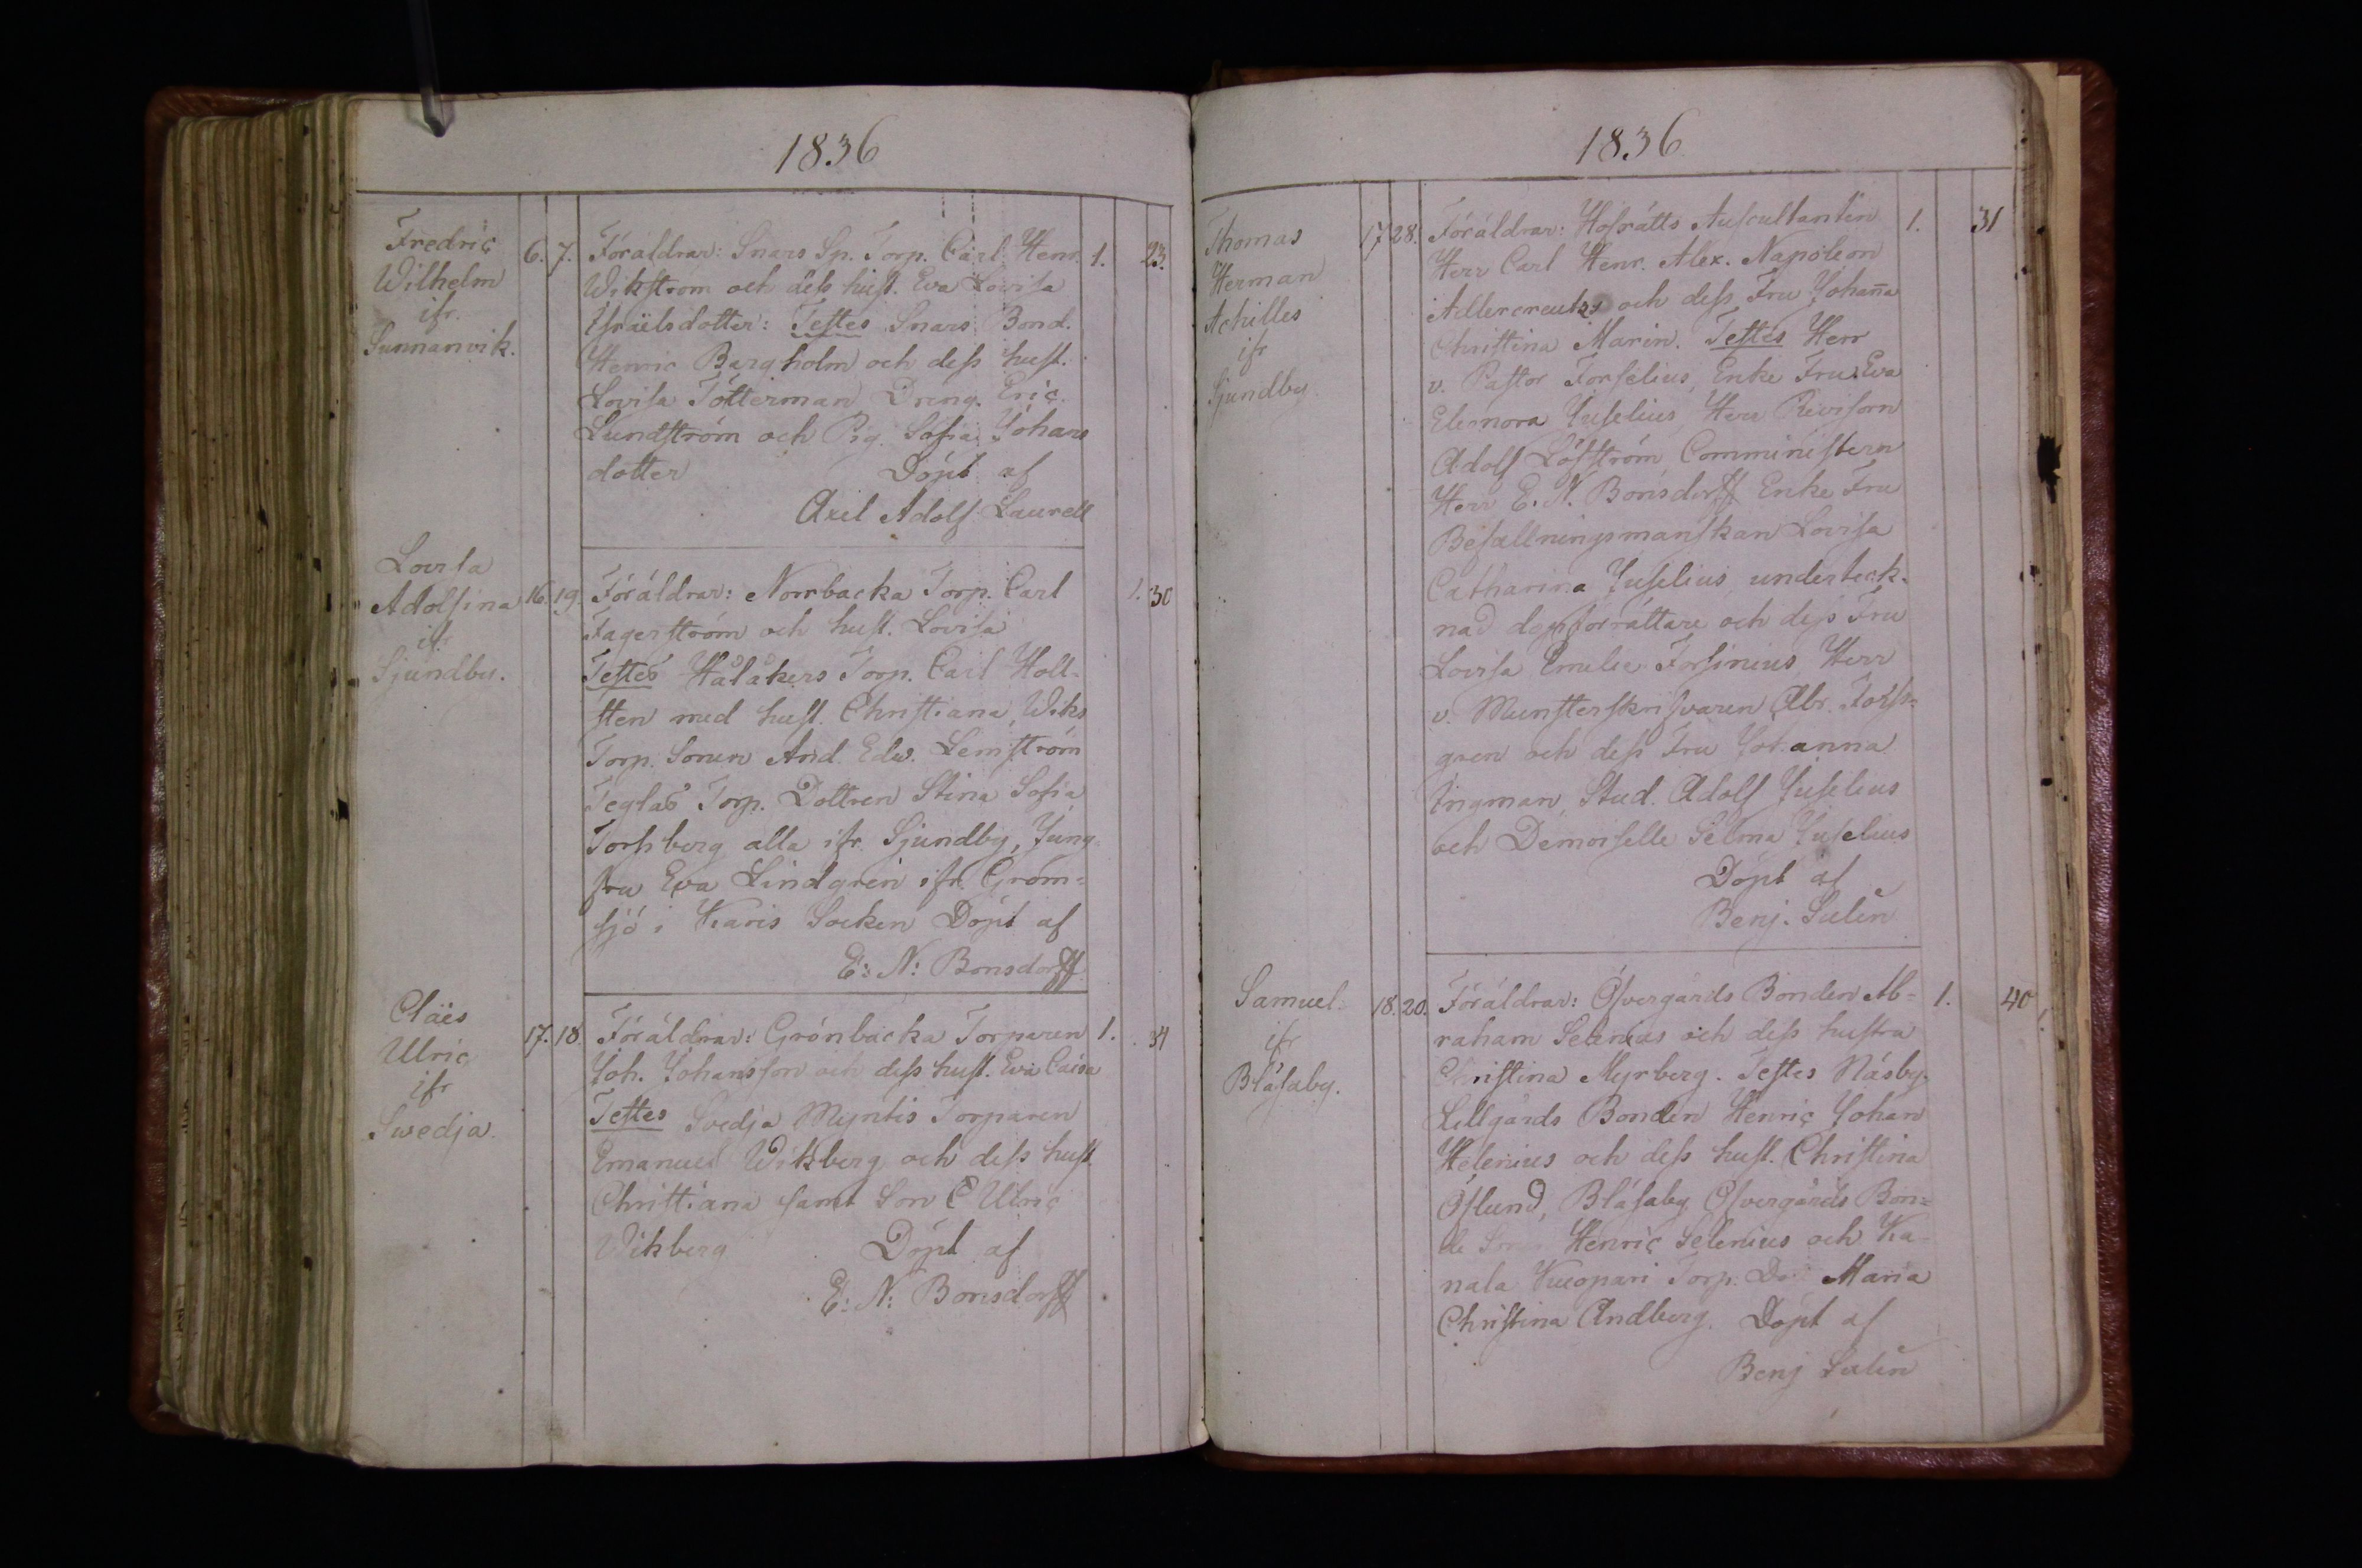 1836
Fredric
Wilhelm
ifr.
Sunnanvik.
6. 7. Föräldrar: Snars Sp. Torp. Carl Henr. 1. 23.
Wikström och dess hust. Eva Lovisa
Israëlsdotter: Testes Snars Bond.
Henric Bargholm och dess hust.
Lovisa Tötterman Dreng. Eric
Lundström och Pig. Sofia Johans
dotter Döpt af
Axel Adolf Laurell
Lovisa
Adolfina
ifr
Sjundby.
16. 19. Föräldrar: Norrbacka Torp. Carl 1. 30
Fagerström och hust. Lovisa
Testes Håläkers Torp. Carl Holl-
sten med hust. Christiana, Wiks
Torp. Sonen And. Edw. Lemström
Teglas Torp. Dottren Stina Sofia
Torsberg alla ifr. Sjundby, Jung-
fru Eva Lindgren ifr. Gröm=
sjö i Karis Socken Döpt af
E: N: Bonsdorff
Claës
Ulric
ifr
Swedja.
17. 18. Föräldrar: Grönbacka Torparen 1. 34
Joh. Johansson och dess hust. Eva Caisa
Testes Svedja Myntis Torparen
Emanuel Wikberg och dess hust
Christiana samt Son C Ulric
Wikberg Döpt af
E: N: Bonsdorff
1836
Thomas
Herman
Achilles
ifr
Sjundby.
17 28. Föräldrar: Hofrätts Auscultanten 1. 31
Herr Carl Henr. Alex. Napoleon
Adlercreutz och dess Fru Johaña
Christina Marin. Testes Herr
v. Pastor Forselius, Enke Fru Eva
Eleonora Juselius, Herr Revisorn
Adolf Löfström Comministern
Herr E. N. Bonsdorff Enke Fru
Befallningsmanskan Lovisa
Catharina Juselius underteck-
nad dopförrättare och dess Fru
Lovisa Emelia Forsinius, Herr
v. Munsterskrifvaren Abr. Fors-
gren och dess Fru Johanna
Ingman, Stud. Adolf Juselius
och Demoiselle Selma Juselius
Döpt af
Benj. Salin
Samuel
ifr
Bläsaby.
18. 20. Föräldrar: Öfvergårds Bonden Ab= 1. 40
raham Selenius och dess hustru
Christina Myrberg. Testes Näsby
Lillgårds Bonden Henric Johan
Helenius och dess hust. Christina
Öslund, Bläsaby Öfvergårds Bon=
de Henric Selenius och Ka-
nala Kuopari Torp. Maria
Christina Andberg. Döpt af
Benj Salin